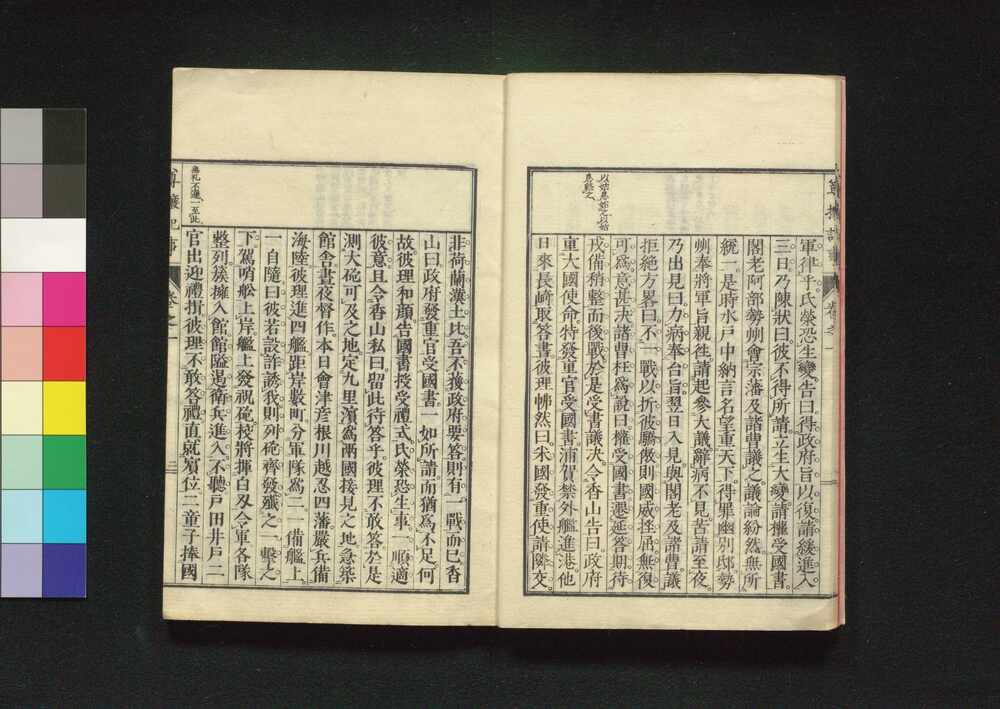 軍律乎氏榮恐生變告曰得政府旨以復請緩進入
三日乃陳狀曰彼不得所請立生大變請權受國書
閣老阿部勢州會宗藩及諸曹議之議論紛然無所
統一是時水戶中納言名望重天下得罪幽別邸勢
州奉將軍旨親往請起參大議辭病不見苦請至夜
乃出見曰力病奉台旨翌日入見與閣老及諸曹議
拒絕方畧曰不一戰以折彼驕傲則國威挫屈無復
可爲意甚決諸曹枉爲說曰權受國書遷延答期待
戎備稍整而後戰於是受書議決令香山告曰政府
重大國使命特發重官受國書浦賀禁外艦進港他
日來長崎取答書彼理怫然曰米國發重使請隣交
以姑息始之以姑
息終之
非荷蘭漢土比吾不獲政府要答則有一戰而已香
山曰政府發重官受國書一如所請而猶爲不足何
故彼理和顏告國書授受禮式氏榮恐生事一順適
彼意且令香山私曰留此待答乎彼理不敢答於是
測大砲可及之地定九里濱爲兩國接見之地急築
館舍晝夜督作本日會津彥根川越忍四藩嚴兵備
海陸彼理進四艦距岸數町分軍隊爲二一備艦上
一自隨曰彼若設詐誘我則列砲齊發殲之一擊之
下駕哨船上岸艦上發祝砲校將揮白刃令軍各隊
整列簇擁入館館隘遏衛兵進入不聽戶田井戶二
官出迎禮揖彼理不敢答禮直就賓位二童子捧國
無礼不遜一至此
尊攘紀事
卷之一
三